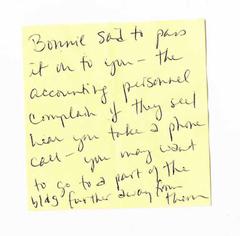 Bonnie said to pass
it on to you - the
accounting personnel
complain if they see/
hear you take a phone
call - you may want
to go to a part of the
bldg further away from
them